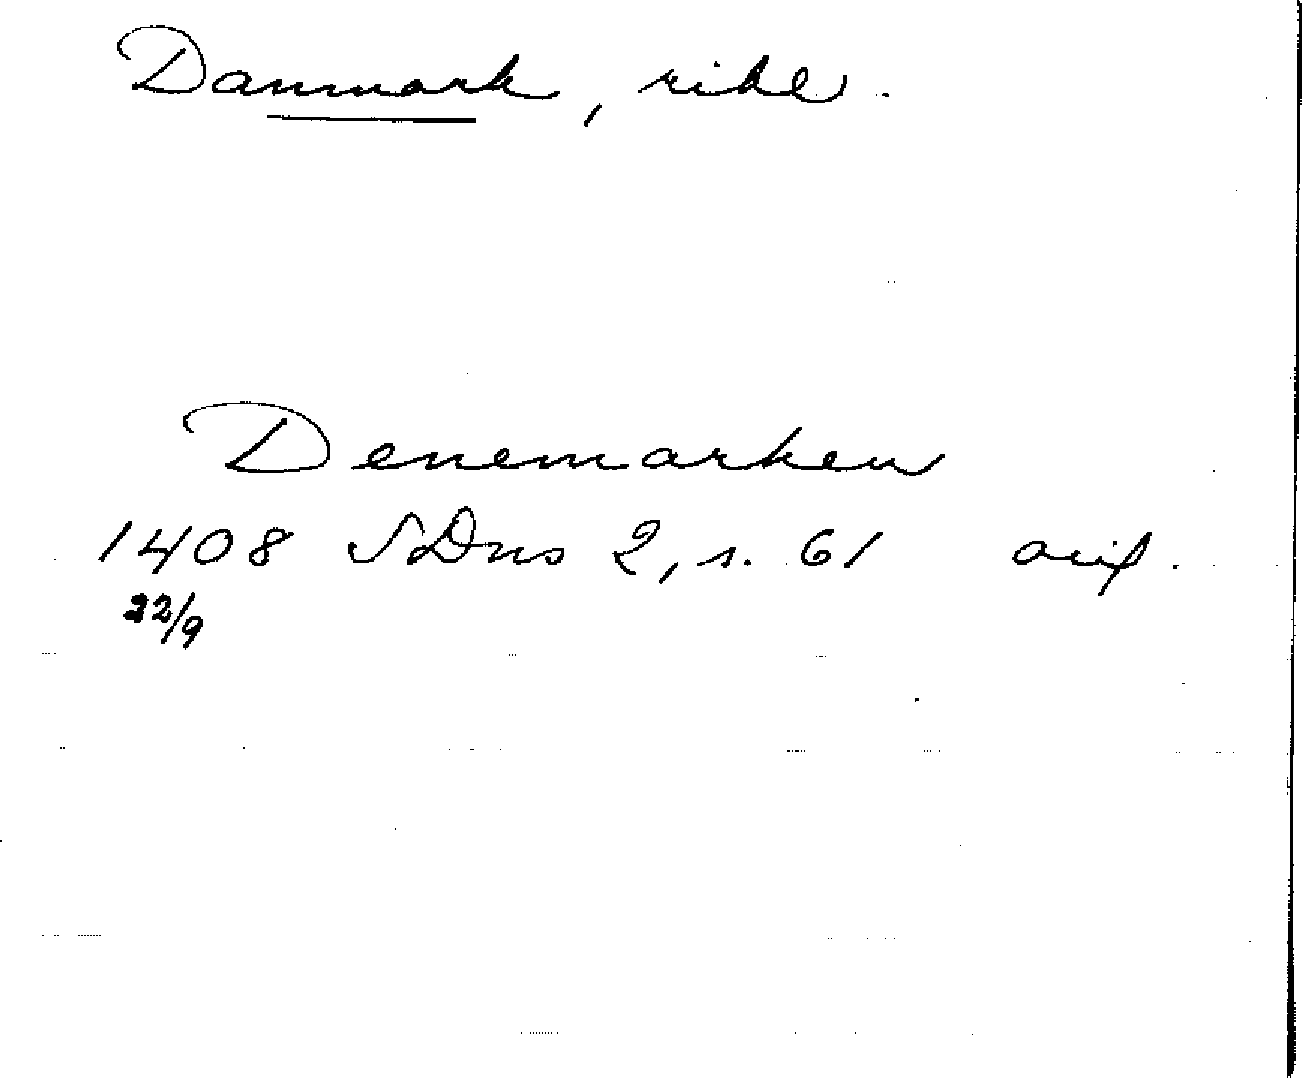 Danmark, rike.
Denemarken
1408 SDns 2, s. 61 avskr.
22/9